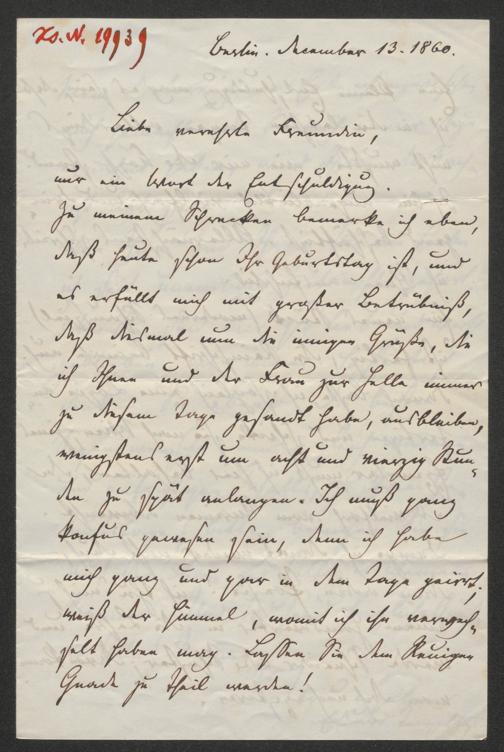 Zs. N. 19939
Berlin. December 13. 1860.
Liebe verehrte Freundin,
nur ein Wort der Entschuldigung.
Zu meinem Schrecken bemerke ich eben,
daß heute schon Ihr Geburtstag ist, und
es erfüllt mich mit großer Betrübniß,
daß diesmal nun die innigen Grüße, die
ich Ihnen und der Frau zur Helle immer
zu diesem Tage gesandt habe, ausbleiben,
wenigstens erst um acht und vierzig Stun-
den zu spät anlangen. Ich muß ganz
konfus gewesen sein, denn ich habe
mich ganz und gar in dem Tage geirrt,
weiß der Himmel, womit ich ihn verwech-
selt haben mag. Lassen Sie dem Reuigen
Gnade zu Theil werden!